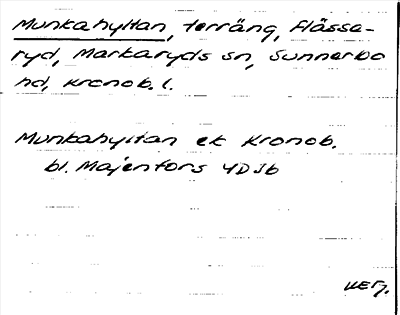 Munkahyltan, terräng, Flässe-
ryd, Markaryds sn, Sunnerbo
hd, Kronob. l.
Munkahyltan ek Kronob.
bl. Majenfors 4D Jb